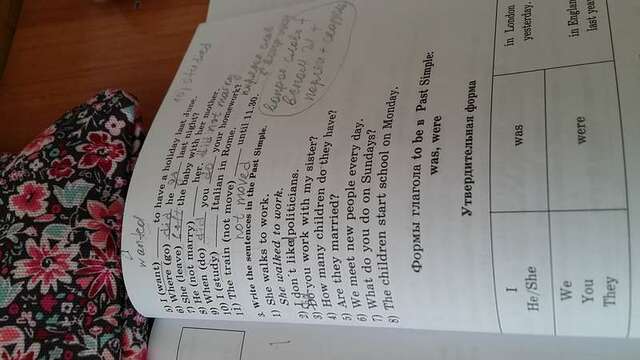 wanted
5) I (want) ____ to have a holiday last June.
6) Where (go) did he go last night?
7) She (leave) left the baby with her mother.
8) He (not marry) ____ her. did not marry
9) When (do) did you do your homework?
10) I (study) ____ Italian in Rome.
11) The train (not move) ____ until 11.30.
not moved
3. Write the sentences in the Past Simple.
1) She walks to work.
She walked to work.
2) I don´t like politicians.
3) Do you work with my sister?
4) How many children do they have?
5) Are they married?
6) We meet new people every day.
7) What do you do on Sundays?
8) The children start school on Monday.
вопрос слова +
Формы глагола to be в Past Simple:
was, were
Утвердительная форма
I
He/She
was
in London
yesterday.
We
You
They
were
in Englan
last yea